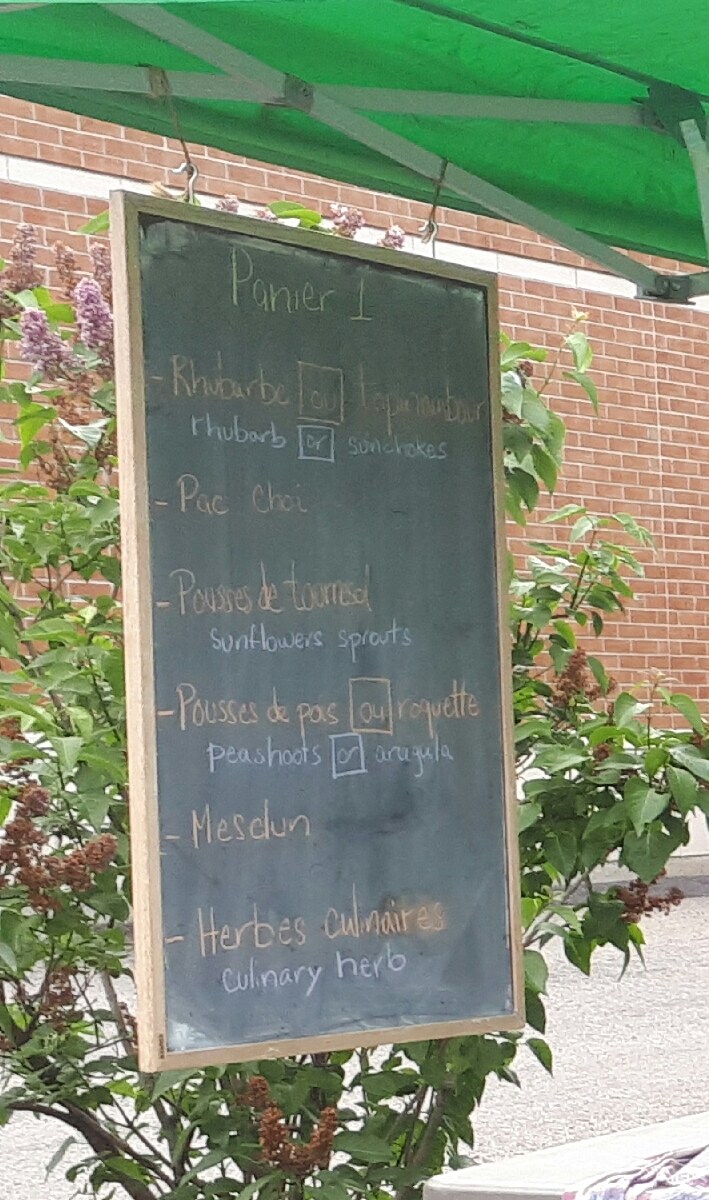 Panier 1
- Rhubarbe ou topinambour
rhubarb or sunchokes
- Pac choi
- Pousses de tournesol
sunflowers sprouts
- Pousses de pois ou roquette
peashoots or arugula
- Mesclun
- Herbes culinaires
culinary herb